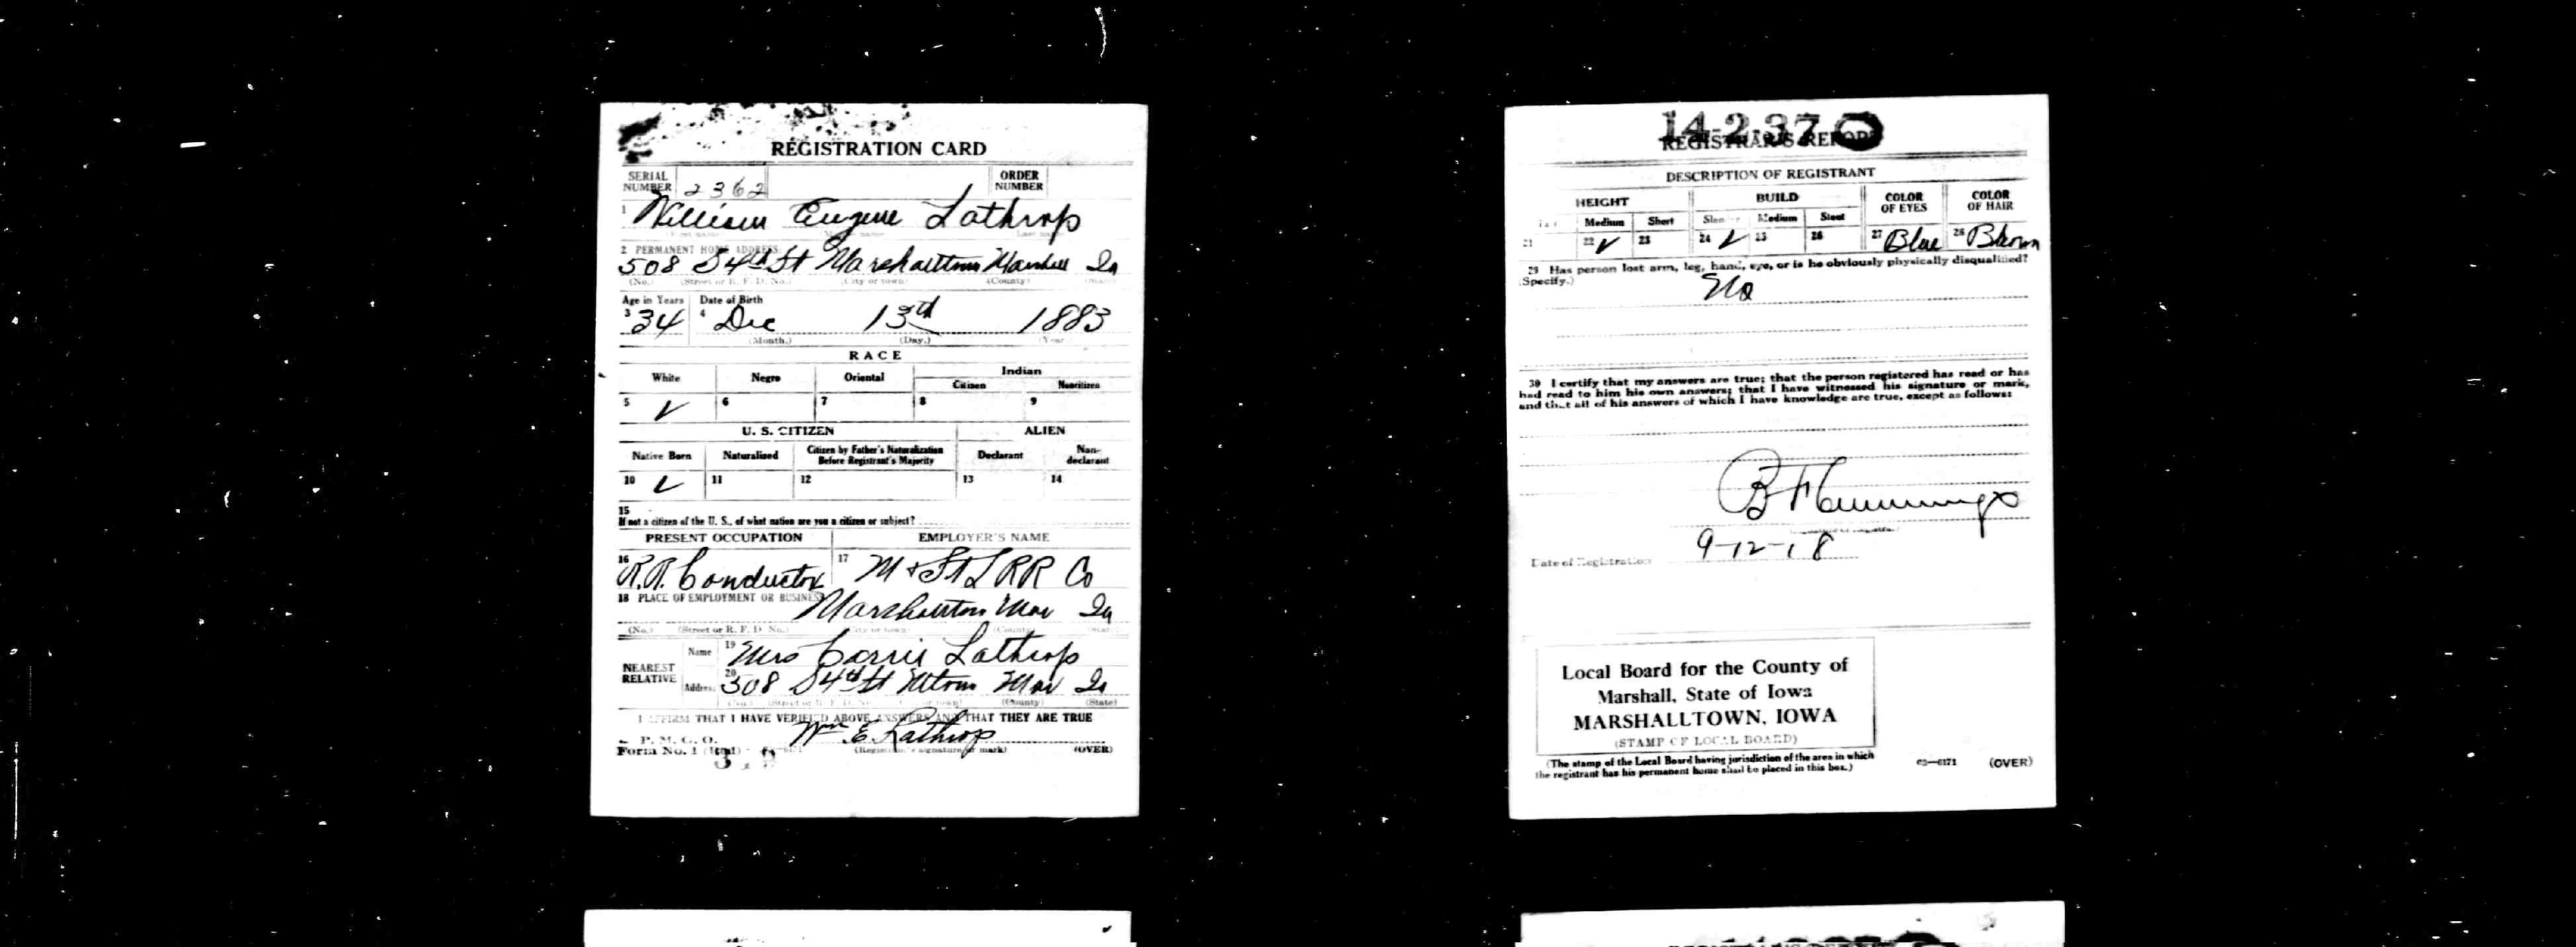 REGISTRATION CARD
SERIAL NUMBER 2362 ORDER NUMBER
1 William Eugene Lathrop
2 PERMANENT HOME ADDRESS:
508 S 4th St Marshalltown Marshall Ia
(No.) (Street or R. F. D. No.) (City or town) (County) (State)
Age in Years Date of Birth
3 34 4 Dec 13th 1883
(Month.) (Day.) (Year.)
RACE
White Negro Oriental Indian
Citizen Noncitizen
5 ✓ 6 7 8 9
U. S. CITIZEN ALIEN
Native Born Naturalized Citizen by Father's Naturalization Before Registrant's Majority Declarant Non-declarant
10 ✓ 11 12 13 14
15
If not a citizen of the U. S., of what nation are you a citizen or subject?
PRESENT OCCUPATION EMPLOYER'S NAME
16 R.R. Conductor 17 M & St L RR Co
18 PLACE OF EMPLOYMENT OR BUSINESS
Marshalltown Mar Ia
(No.) (Street or R. F. D. No.) (City or town) (County) (State)
NEAREST RELATIVE
Name 19 Mrs Carrie Lathrop
Address 20 508 S 4th St Mtown Mar Ia
(No.) (Street or R. F. D. No.) (City or town) (County) (State)
I AFFIRM THAT I HAVE VERIFIED ABOVE ANSWERS AND THAT THEY ARE TRUE
P. M. G. O.
Form No. 1 (Red) Wm E. Lathrop
(Registrant's signature or mark) (OVER)
14-2-37
REGISTRAR'S REPORT
DESCRIPTION OF REGISTRANT
HEIGHT BUILD COLOR OF EYES COLOR OF HAIR
Medium Short Slender Medium Stout
21 22 ✓ 23 24 ✓ 25 26 27 Blue 28 Brown
29 Has person lost arm, leg, hand, eye, or is he obviously physically disqualified?
(Specify.) No
30 I certify that my answers are true; that the person registered has read or has
had read to him his own answers; that I have witnessed his signature or mark,
and that all of his answers of which I have knowledge are true, except as follows:
B F Cummings
Date of Registration 9-12-18
Local Board for the County of
Marshall, State of Iowa
MARSHALLTOWN, IOWA
(STAMP OF LOCAL BOARD)
(The stamp of the Local Board having jurisdiction of the area in which
the registrant has his permanent home shall be placed in this box.)
03—6171 (OVER)